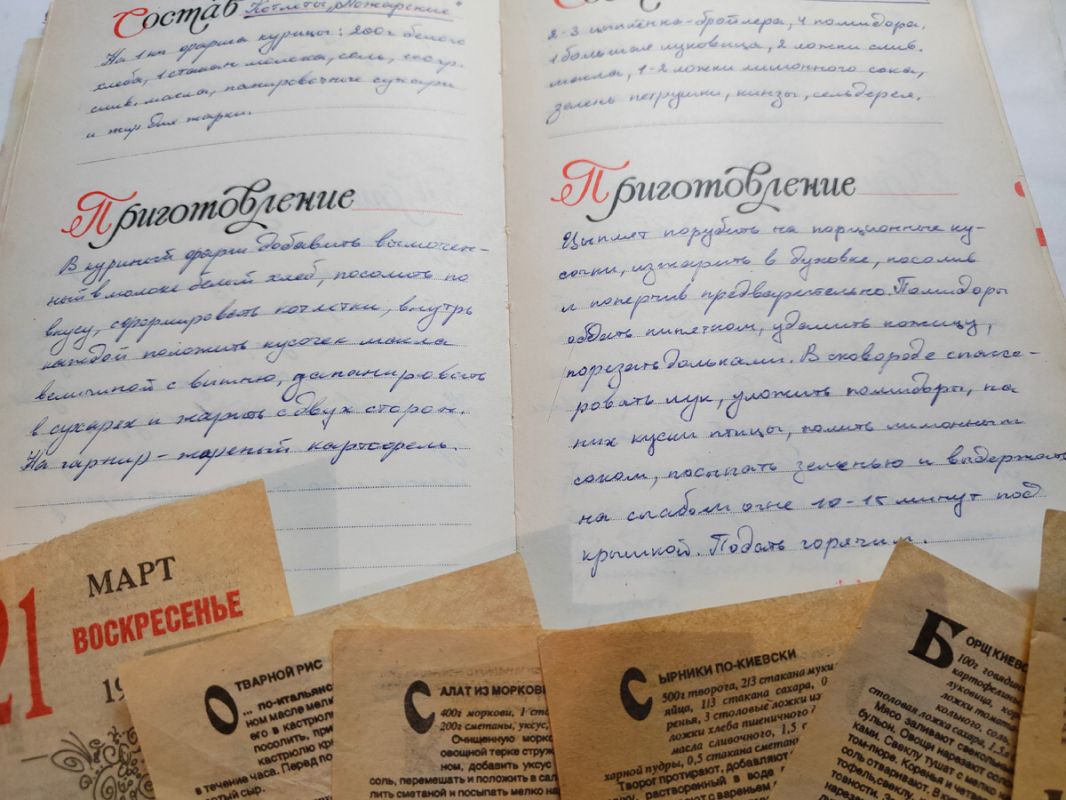 Состав Котлеты „Пожарские“
На 1 кг фарша курицы: 200 г белого
хлеба, 1 стакан молока, соль, 100 гр.
слив. масла, панировочные сухари
и жир для жарки.
Приготовление
В куриный фарш добавить вымочен-
ный в молоке белый хлеб, посолить по
вкусу, сформировать котлетки, внутрь
каждой положить кусочек масла
величиной с вишню, запанировать
в сухарях и жарить с двух сторон.
На гарнир - жареный картофель.
2-3 цыпленка-бройлера, 4 помидора,
1 большая луковица, 2 ложки слив.
масла, 1-2 ложки лимонного сока,
зелень петрушки, кинзы, сельдерея.
Приготовление
Цыплят порубить на порционные ку-
сочки, изжарить в духовке, посолив
и поперчив предварительно. Помидоры
обдать кипятком, удалить кожицу,
порезать дольками. В сковороде спассе-
ровать лук, уложить помидоры, на
них куски птицы, полить лимонным
соком, посыпать зеленью и выдержать
на слабом огне 10-15 минут под
крышкой. Подать горячим.
21 МАРТ
ВОСКРЕСЕНЬЕ
19
ОТВАРНОЙ РИС
... по-итальянс
ном масле мел
его в кастрюл
посолить, при
кастрюлю кр
в течение часа. Перед по
тый сыр.
САЛАТ ИЗ МОРКОВИ
400г моркови, 1 ст
200г сметаны, уксус,
Очищенную морко
овощной терке струж
ном, добавить уксус
соль, перемешать и положить в сал
лить сметаной и посыпать мелко на
СЫРНИКИ ПО-КИЕВСКИ
500г творога, 2/3 стакана муки
яйца, 1/3 стакана сахара, 0
ренья, 3 столовые ложки из
ложки хлеба пшеничного
масла сливочного, 1,5
харной пудры, 0,5 стакана сметан
Творог протирают, добавляют
растворенный в воде
с вареньем
БОРЩ КИЕВС
100г говядины
картофелин
луковица, кор
ложки томатно
кольного, соль
столовая ложка сахара, 1,5л
Мясо заливают свекольным
бульон. Овощи нарезают солом
ками. Свеклу тушат с мелко
том-пюре. Коренья и
соль отваривают. В
тофель, свеклу,
товности. За
нареза